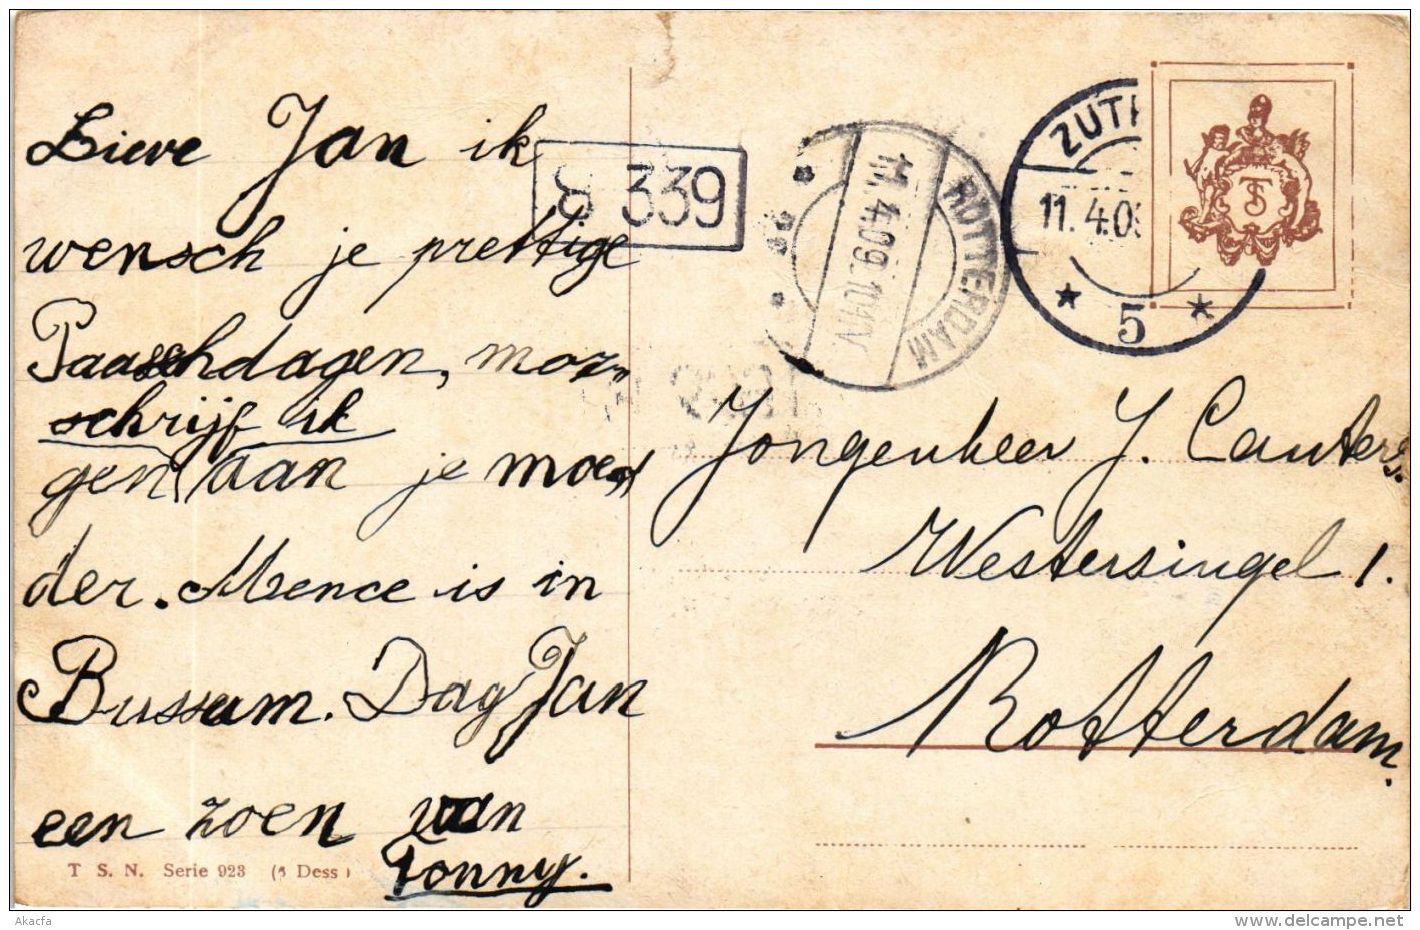 Lieve Jan ik
wensch je prettige
Paaschdagen, mor„
schrijf ik
gen aan je moe„
der. Mence is in
Bussum. Dag Jan
een zoen van
Tonny.
T S. N. Serie 923 (5 Dess)
339
ROTTERDAM
11.4.09.
ZUTP
11.4.09
5
TS
Jongenheer J. Canters.
Westersingel 1.
Rotterdam.
Akacfa
www.delcampe.net